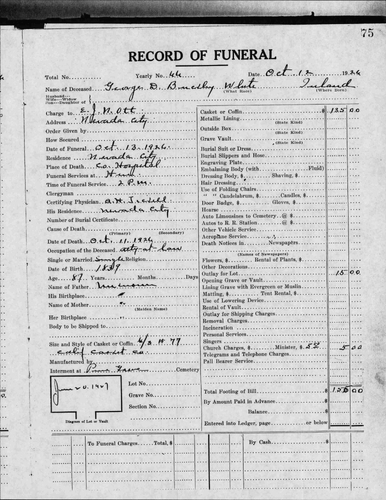 75
RECORD OF FUNERAL
Total No. Yearly No. 44 Date Oct. 12 1926
Name of Deceased George D. Buckley White Ireland
(What Race) (Where Born)
Husband
Wife Widow
Son Daughter of
Charge to E. J. N. Ott
Address Nevada City
Order Given by
How Secured
Date of Funeral Oct. 13. 1926
Residence Nevada City
Place of Death Co. Hospital
Funeral Services at Home
Time of Funeral Service 2 P.m.
Clergyman
Certifying Physician
His Residence Nevada City
Number of Burial Certificate
Cause of Death
(Primary) (Secondary)
Date of Death Oct. 11. 1926
Occupation of the Deceased atty-at-law
Single or Married Single Religion
Date of Birth 1839
Age 87 Years Months Days
Name of Father Unknown
His Birthplace "
Name of Mother "
(Maiden Name)
Her Birthplace "
Body to be Shipped to
Size and Style of Casket or Coffin 6/3 # 77
Calif Casket Co.
Manufactured by
Interment at Pine Grove Cemetery
Lot No.
Grave No.
Section No.
June 20. 1927
Diagram of Lot or Vault
Casket or Coffin $ 135 00
Metallic Lining
(State Kind)
Outside Box
(State Kind)
Grave Vault
(State Kind)
Burial Suit or Dress
Burial Slippers and Hose
Engraving Plate
Embalming Body (with Fluid)
Dressing Body, $ Shaving, $
Hair Dressing
Use of Folding Chairs
" " Candelabrum, $ Candles, $
Door Badge, $ Gloves, $
Hearse
Auto Limousines to Cemetery @ $
Autos to R. R. Station @ $
Other Vehicle Service
Aeroplane Service
Death Notices in Newspapers
(Names of Newspapers)
Flowers, $ Rental of Plants, $
Other Decorations
Outlay for Lot 15 00
Opening Grave or Vault
Lining Grave with Evergreen or Muslin
Matting, $ Tent Rental, $
Use of Lowering Device
Rental of Vault
Outlay for Shipping Charges
Removal Charges
Incineration
Personal Services
Singers
Church Charges, $ Minister, $ 5 00
Telegrams and Telephone Charges
Pall Bearer Service
Total Footing of Bill $ 155 00
By Amount Paid in Advance
Balance
Entered into Ledger, page or below
To Funeral Charges. Total, $ By Cash $